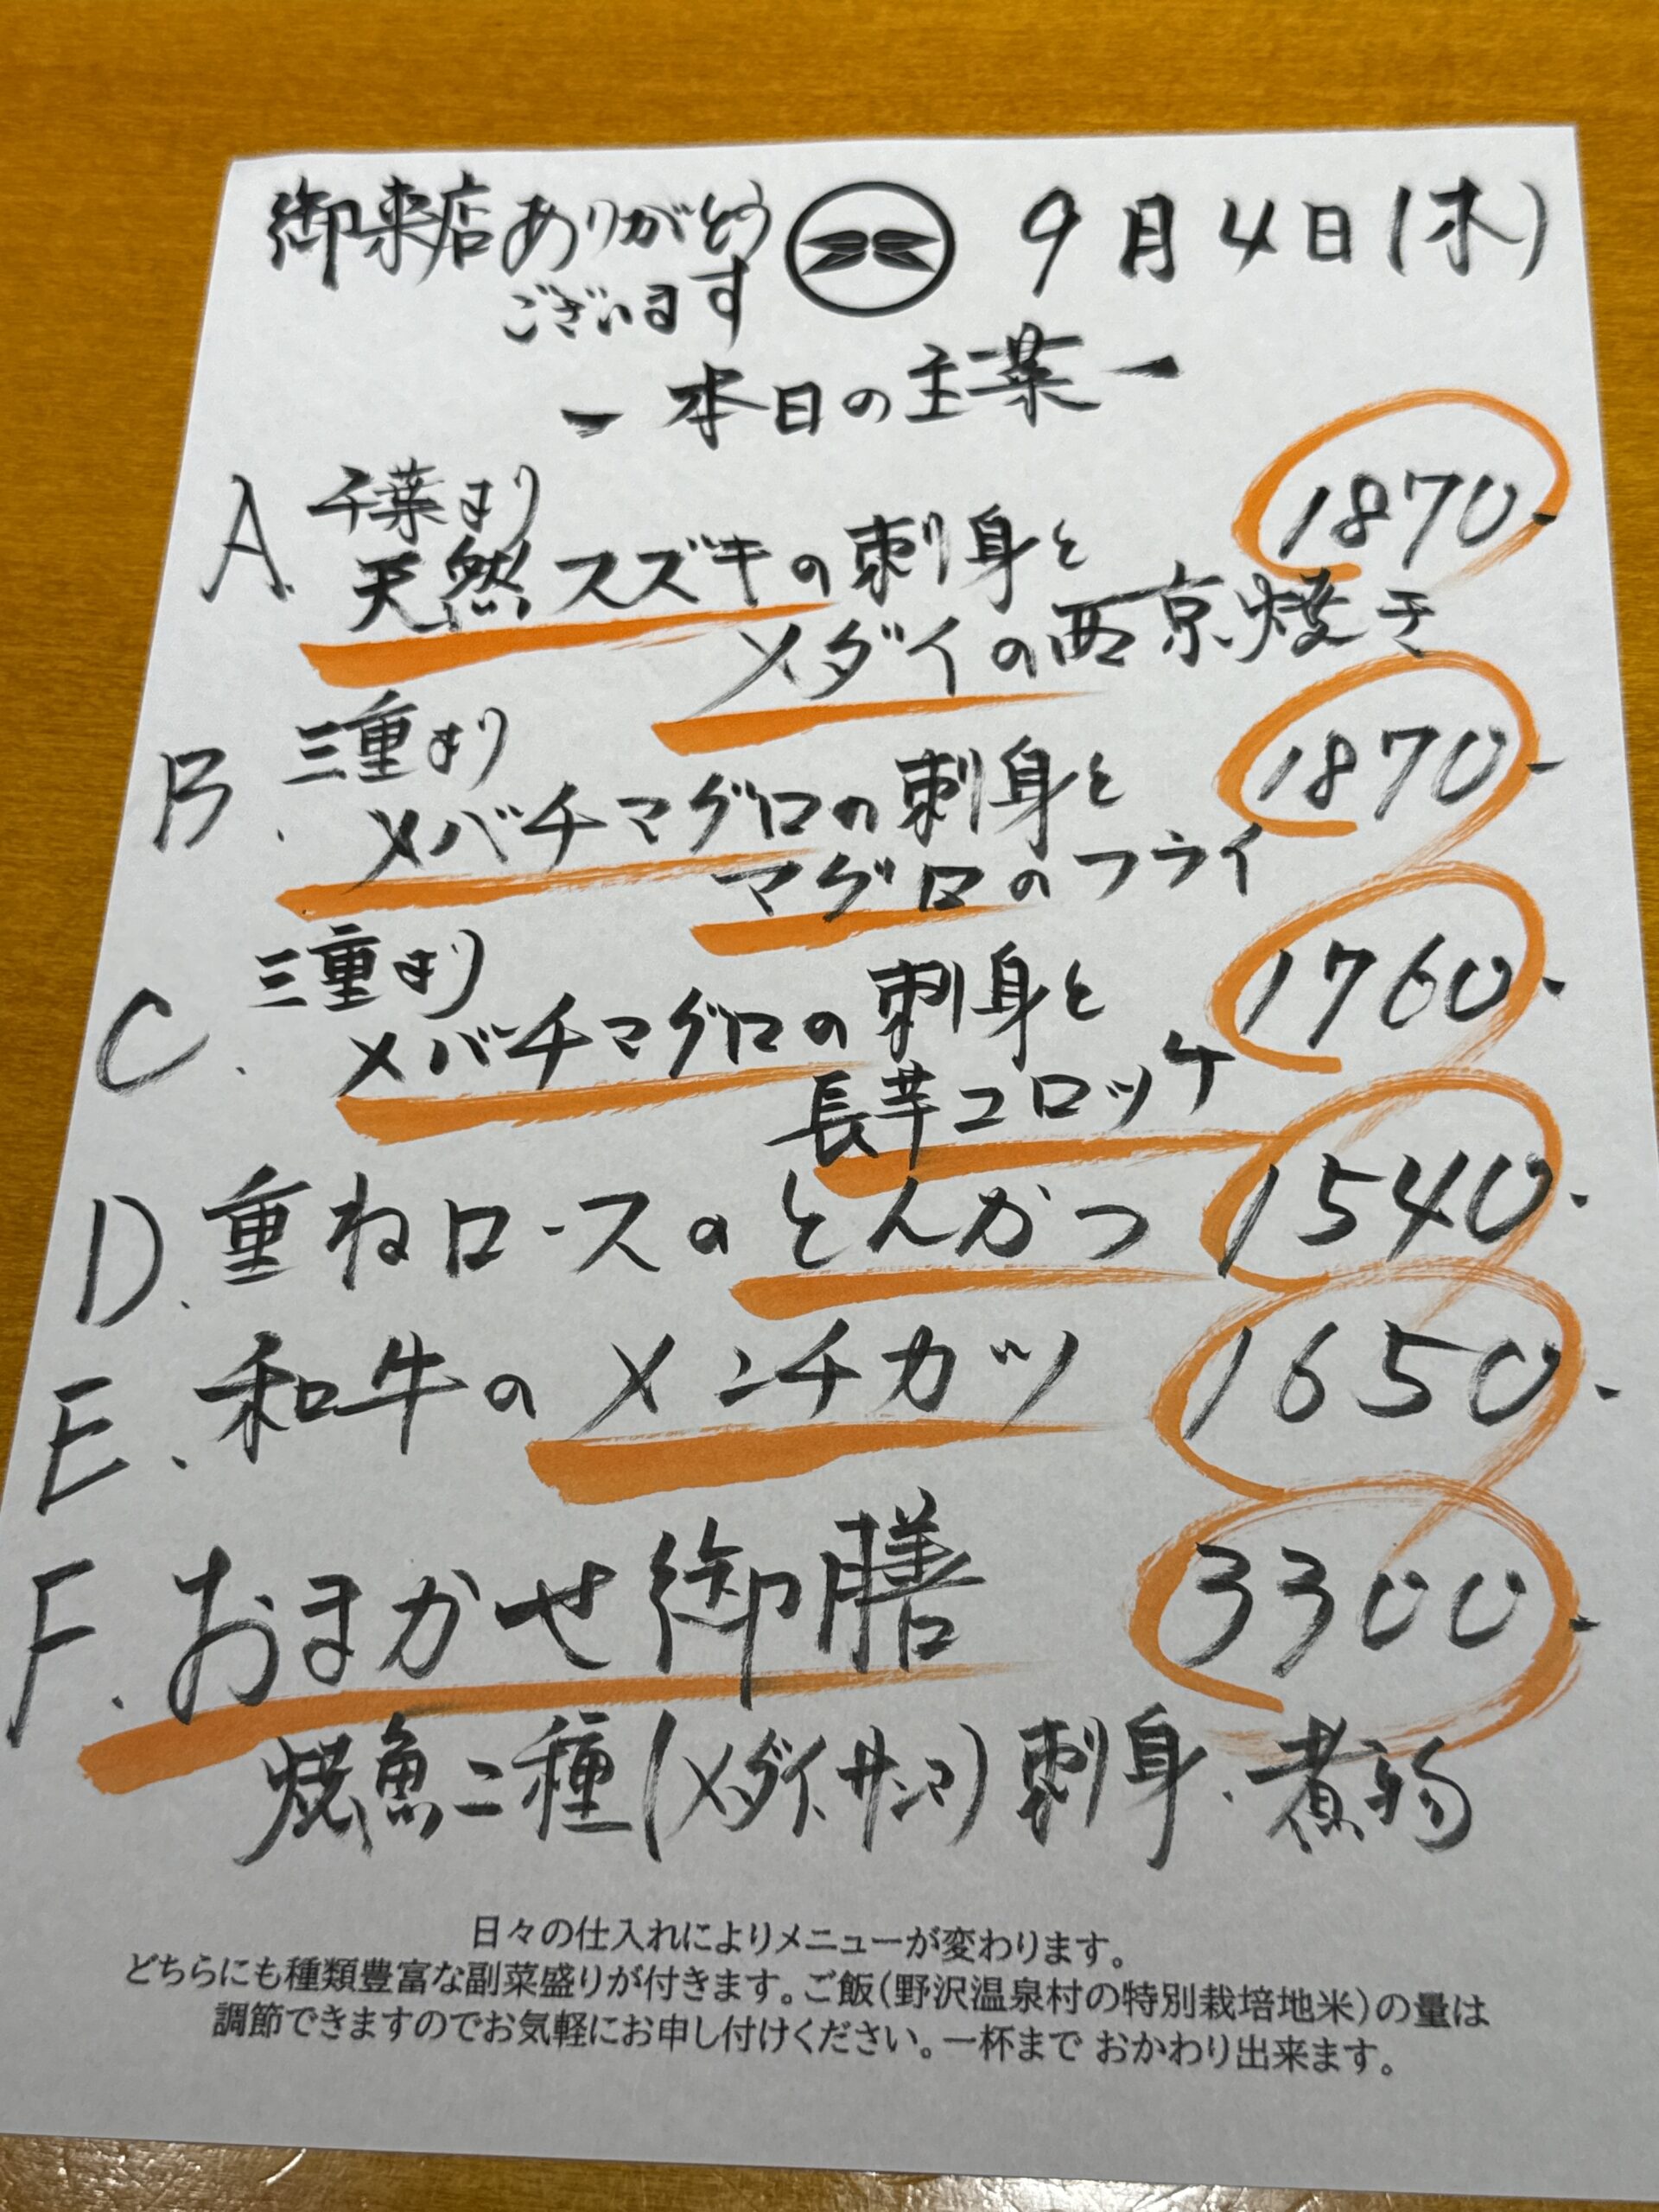 御来店ありがとう
ございます
9月4日(木)
ー本日の主菜ー
A. 千葉より
天然スズキの刺身と
メダイの西京焼き
1870-
B. 三重より
メバチマグロの刺身と
マグロのフライ
1870-
C. 三重より
メバチマグロの刺身と
長芋コロッケ
1760-
D. 重ねロースのとんかつ 1540-
E. 和牛のメンチカツ 1650-
F. おまかせ御膳 3300-
焼魚二種(メダイ、サンマ)刺身、煮物
日々の仕入れによりメニューが変わります。
どちらにも種類豊富な副菜盛りが付きます。ご飯(野沢温泉村の特別栽培地米)の量は
調節できますのでお気軽にお申し付けください。一杯まで おかわり出来ます。